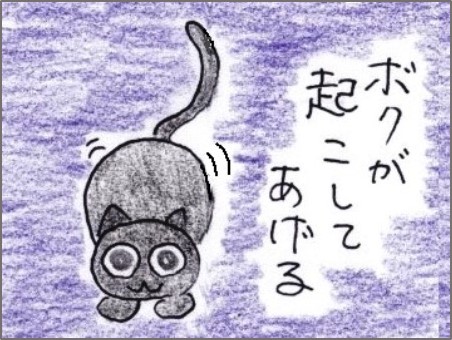 ボクが
起こして
あげる